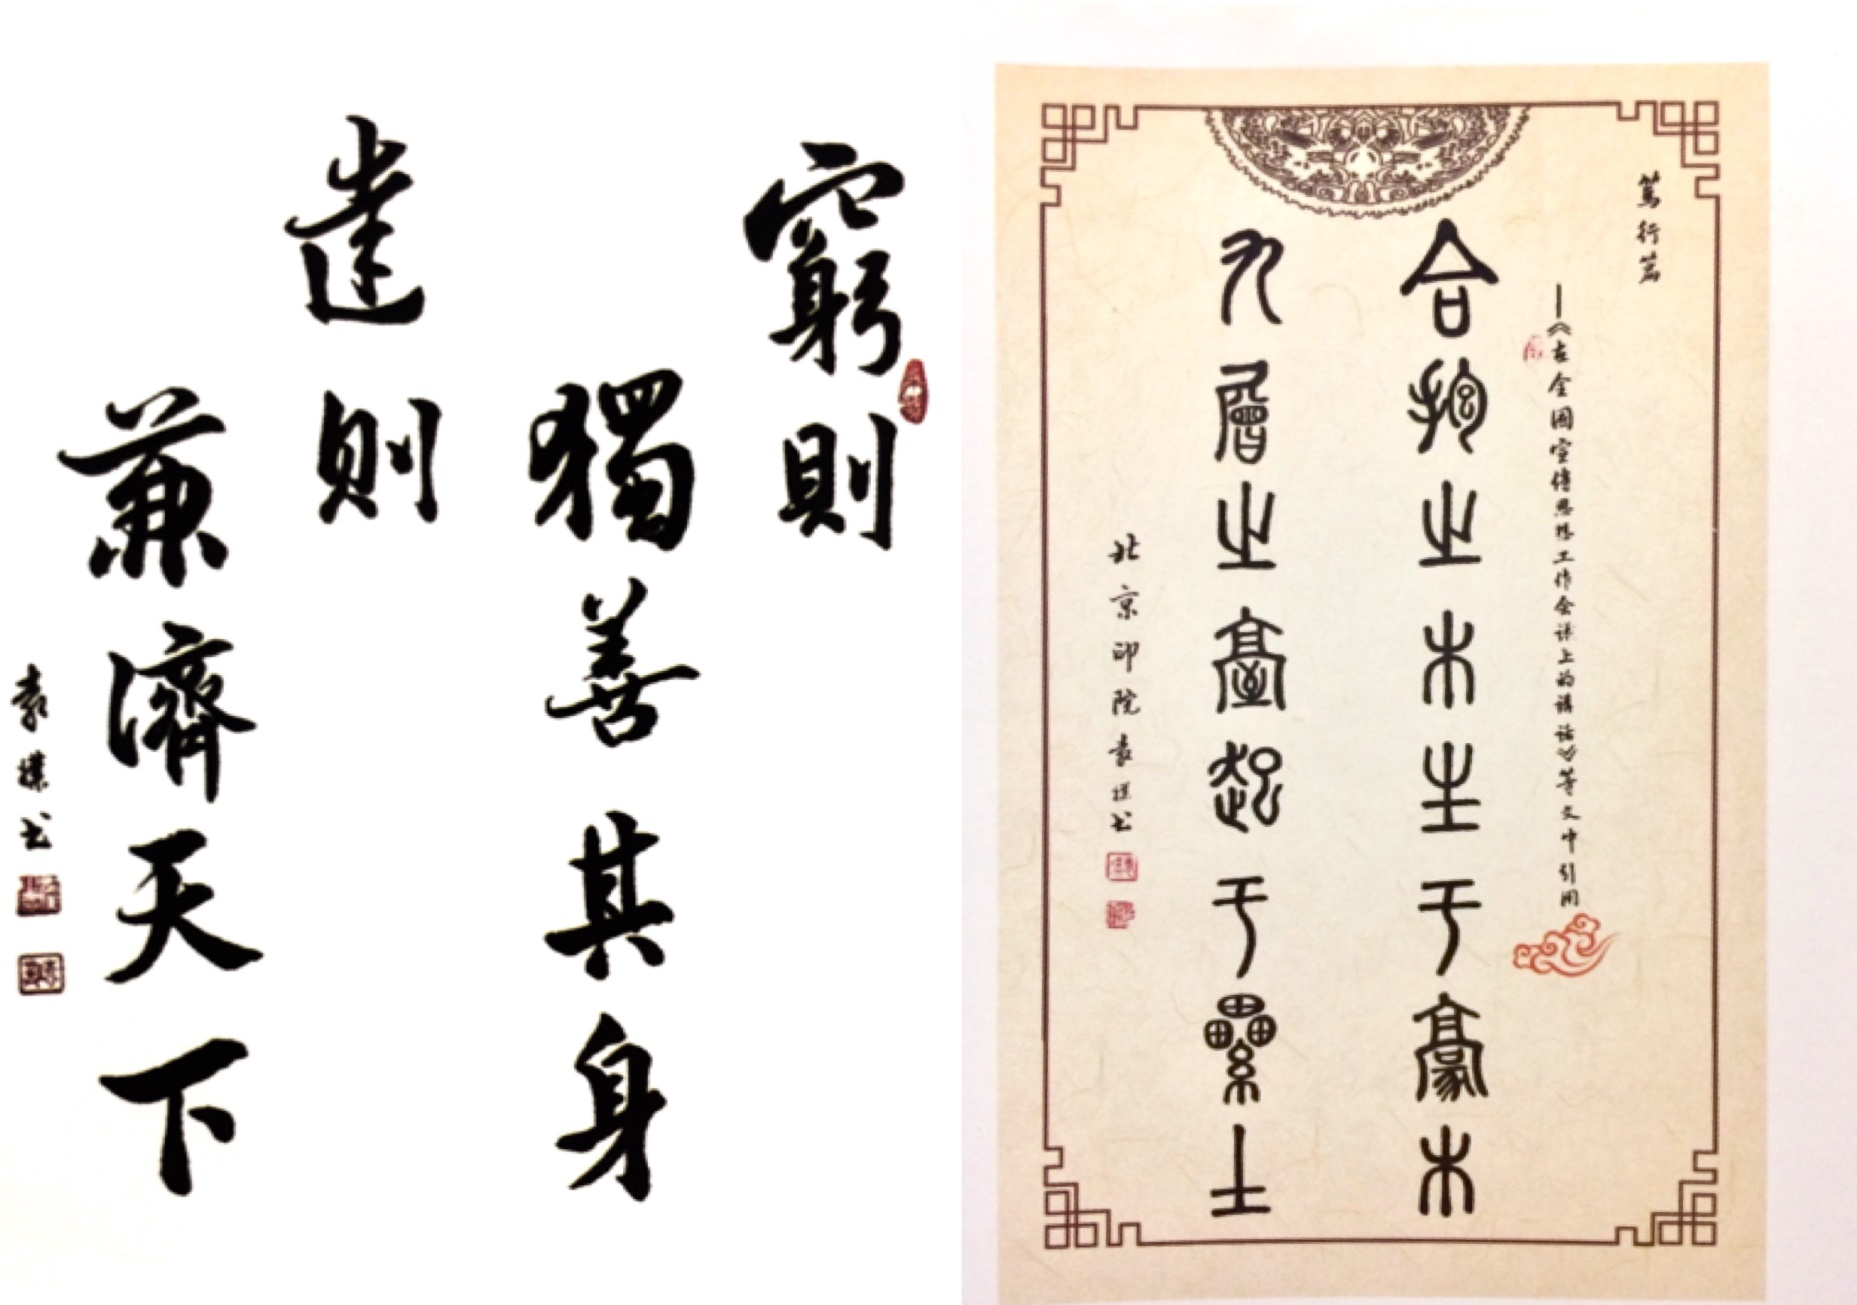 窮則
獨善其身
達則
兼濟天下
袁樸书
篤行篇
—《在全國宣傳思想工作会议上的講話》等文中引用
合抱之木生于豪木
九層之臺起于纍土
北京印院袁樸书